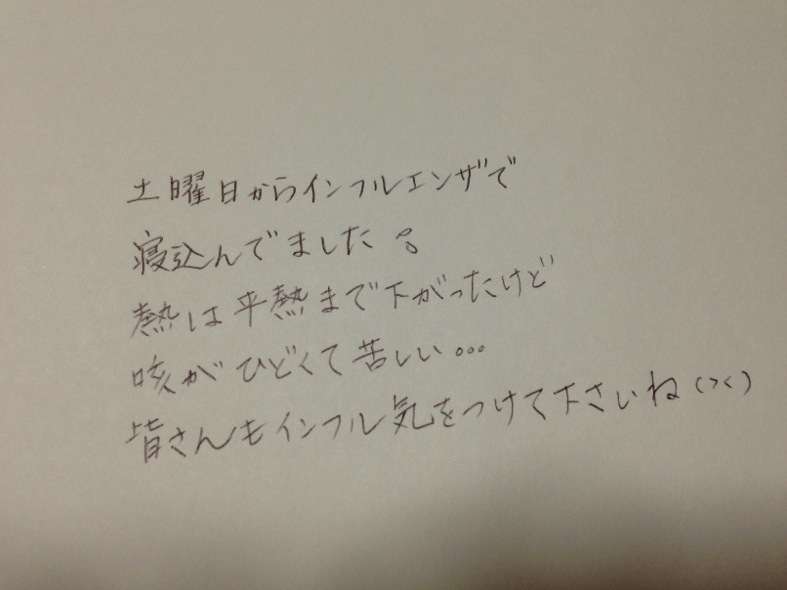 土曜日からインフルエンザで
寝込んでました。
熱は平熱まで下がったけど
咳がひどくて苦しい...
皆さんもインフル気をつけて下さいね(><)